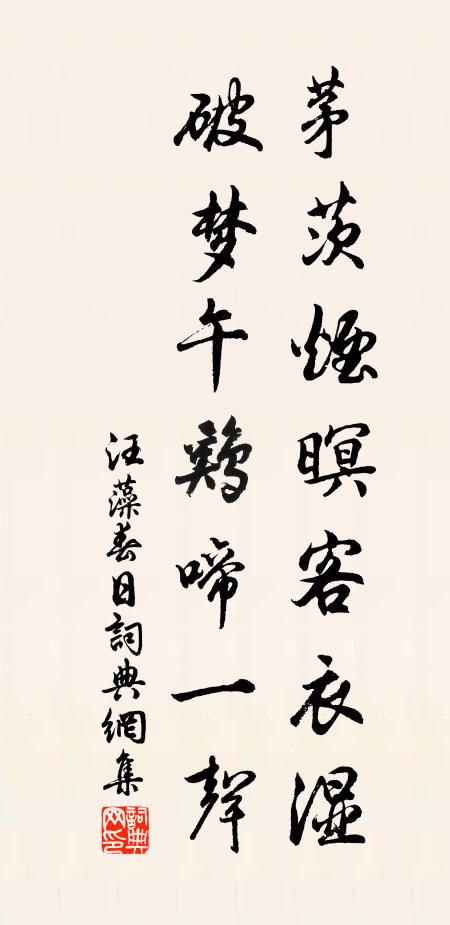 茅茨煙暝客衣湿
破梦午鷄啼一聲
汪藻春日詞典網集
詞典網印